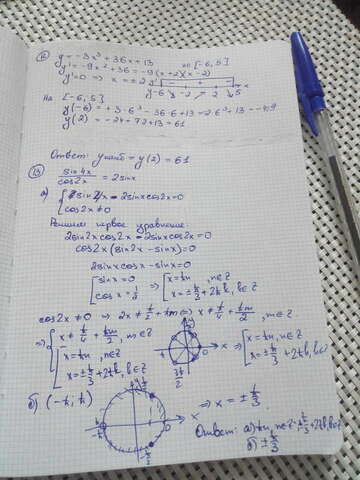 12) y = -3x³ + 36x + 13 на [-6; 5]
y' = -9x² + 36 = -9(x+2)(x-2)
y' = 0 ⇒ x = ±2
y' - + -
y -6 ↘ -2 ↗ 2 ↘ 5 x
На [-6; 5]
y(-6) = +3·6³ - 36·6 + 13 =
y(2) = -24 + 72 + 13 = 61
Ответ: yнаиб = y(2) = 61
13) sin4x / cos2x = 2sinx
а) sin4x - 2sinxcos2x = 0
cos2x ≠ 0
Решим первое уравнение:
2sin2xcos2x - 2sinxcos2x = 0
cos2x(sin2x - sinx) = 0
2sinxcosx - sinx = 0
[sinx = 0 ⇒ [x = πn, n∈Z
[cosx = 1/2 [x = ±π/3 + 2πk, k∈Z
cos2x ≠ 0 ⇒ 2x ≠ π/2 + πm ⇒ x ≠ π/4 + πm/2, m∈Z.
⇒ {x ≠ π/4 + πm/2, m∈Z
[x = πn, n∈Z ⇒ [x = πn, n∈Z
[x = ±π/3 + 2πk, k∈Z [x = ±π/3 + 2πk, k∈Z
б) (-π; π) ⇒ x = ±π/3
Ответ: а) πn, n∈Z; ±π/3 + 2πk, k∈Z
б) ±π/3